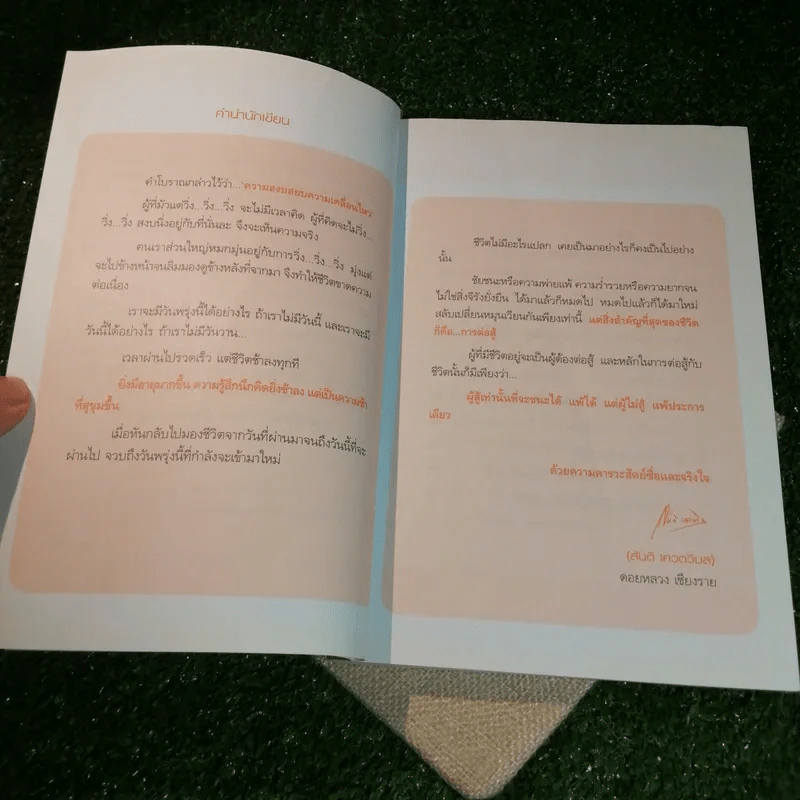 คำนำนักเขียน
คำโบราณกล่าวไว้ว่า...'ความสงบสยบความเคลื่อนไหว'
ผู้ที่มัวแต่วิ่ง...วิ่ง...วิ่ง จะไม่มีเวลาคิด ผู้ที่คิดจะไม่วิ่ง...
วิ่ง...วิ่ง สงบนิ่งอยู่กับที่นั่นละ จึงจะเห็นความจริง
คนเราส่วนใหญ่หมกมุ่นอยู่กับการวิ่ง...วิ่ง...วิ่ง มุ่งแต่
จะไปข้างหน้าจนลืมมองดูข้างหลังที่จากมา จึงทำให้ชีวิตขาดความ
ต่อเนื่อง
เราจะมีวันพรุ่งนี้ได้อย่างไร ถ้าเราไม่มีวันนี้ และเราจะมี
วันนี้ได้อย่างไร ถ้าเราไม่มีวันวาน...
เวลาผ่านไปรวดเร็ว แต่ชีวิตช้าลงทุกที
ยิ่งมีอายุมากขึ้น ความรู้สึกนึกคิดยิ่งช้าลง แต่เป็นความช้า
ที่สุขุมขึ้น
เมื่อหันกลับไปมองชีวิตจากวันที่ผ่านมาจนถึงวันนี้ที่จะ
ผ่านไป จวบถึงวันพรุ่งนี้ที่กำลังจะเข้ามาใหม่
ชีวิตไม่มีอะไรแปลก เคยเป็นมาอย่างไรก็คงเป็นไปอย่าง
นั้น
ชัยชนะหรือความพ่ายแพ้ ความร่ำรวยหรือความยากจน
ไม่ใช่สิ่งจีรังยั่งยืน ได้มาแล้วก็หมดไป หมดไปแล้วก็ได้มาใหม่
สลับเปลี่ยนหมุนเวียนกันเพียงเท่านี้ แต่สิ่งสำคัญที่สุดของชีวิต
ก็คือ...การต่อสู้
ผู้ที่มีชีวิตอยู่จะเป็นผู้ต้องต่อสู้ และหลักในการต่อสู้กับ
ชีวิตนั้นก็มีเพียงว่า...
ผู้สู้เท่านั้นที่จะชนะได้ แพ้ได้ แต่ผู้ไม่สู้ แพ้ประการ
เดียว
ด้วยความคารวะสัตย์ซื่อและจริงใจ
(สันติ เศวตวิมล)
ดอยหลวง เชียงราย